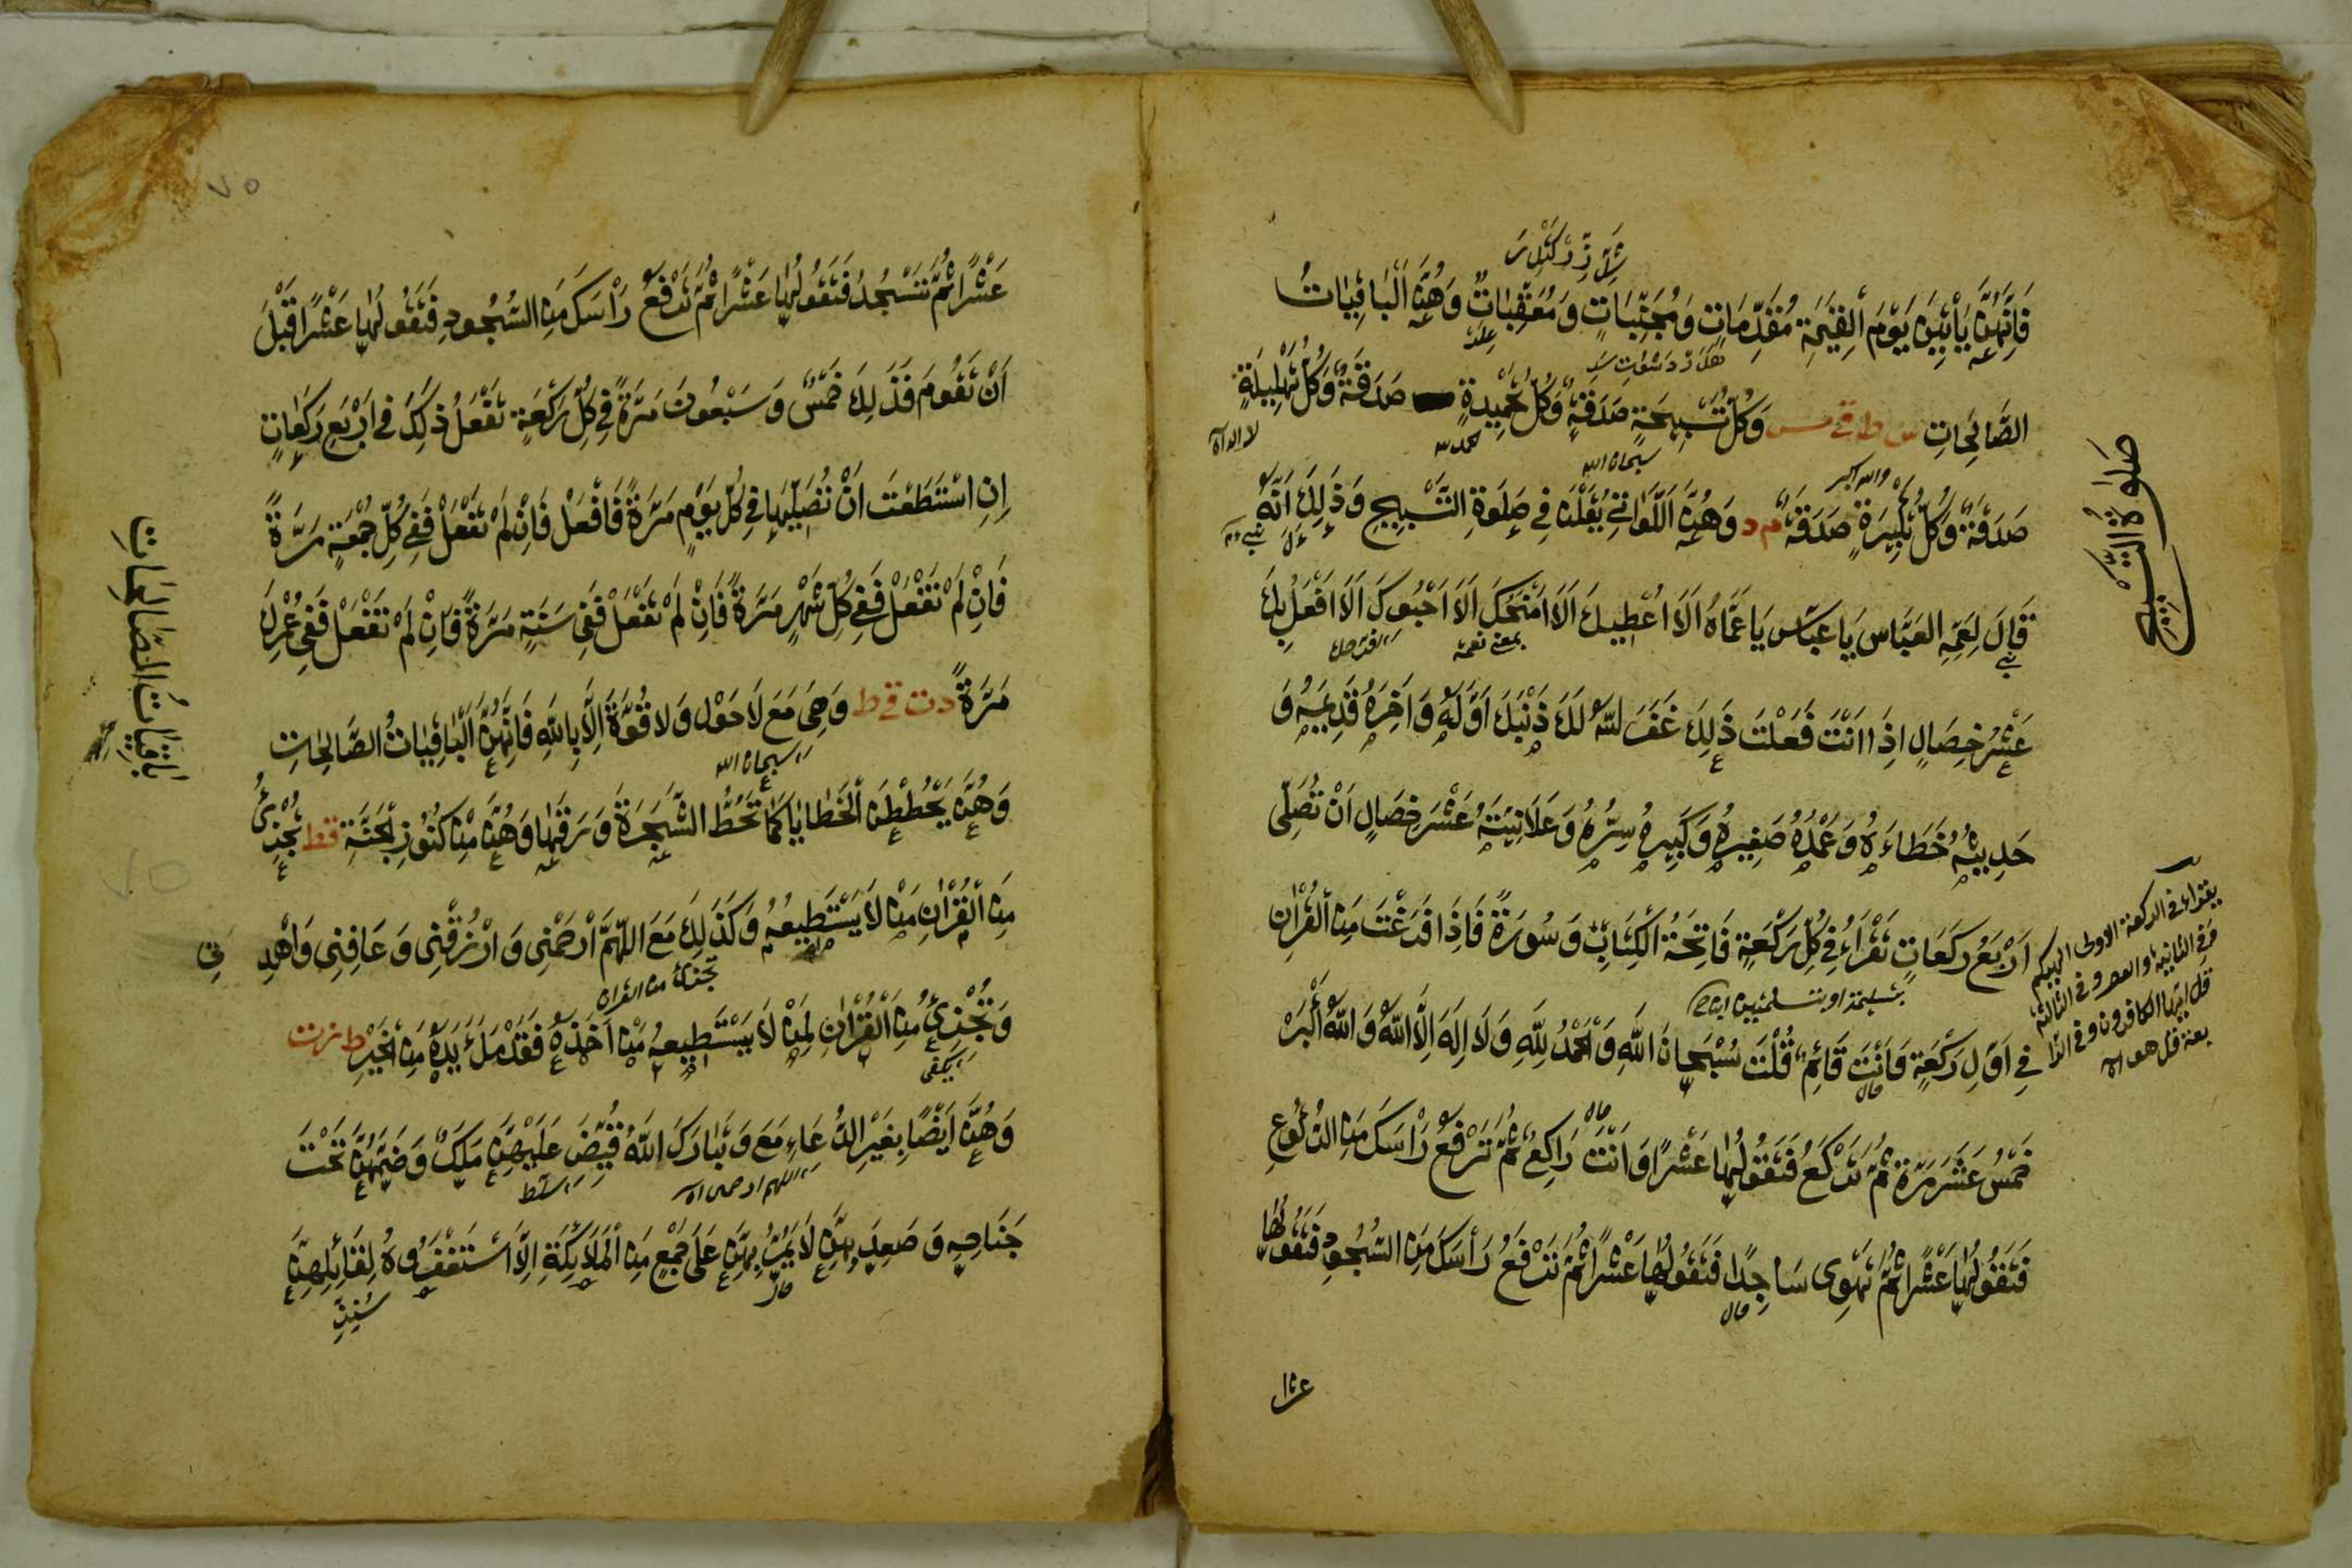 فَاِنَّهُنَّ يَأْتِيْنَ يَوْمَ الْقِيٰمَةِ مُقَدِّمَاتٍ وَمُجَنِّبَاتٍ وَمُعَقِّبَاتٌ وَهُنَّ الْبَاقِيَاتُ
الصَّالِحَاتِ س ط ق مس وَكُلُّ تَسْبِيْحَةٍ صَدَقَةٌ وَكُلُّ تَحْمِيْدَةٍ صَدَقَةٌ وَكُلُّ تَهْلِيْلَةٍ
صَدَقَةٌ وَكُلُّ تَكْبِيْرَةٍ صَدَقَةٌ م د وَهُنَّ اللَّوَاتِيْ يُقَلْنَ فِيْ صَلٰوةِ التَّسْبِيْحِ وَذٰلِكَ اَنَّهُ
قَالَ لِعَمِّهِ العَبَّاسِ يَا عَبَّاس يَا عَمَّاهُ اَلَا اُعْطِيكَ اَلَا اَمْنَحُكَ اَلَا اَحْبُوكَ اَلَا اَفْعَلُ بِكَ
عَشْرُ خِصَالٍ اِذَا اَنْتَ فَعَلْتَ ذٰلِكَ غَفَرَ اللّٰهُ لَكَ ذَنْبَكَ اَوَّلَهُ وَاٰخِرَهُ قَدِيْمَهُ وَ
حَدِيثَهُ خَطَاءَهُ وَعَمْدَهُ صَغِيْرَهُ وَكَبِيرَهُ سِرَّهُ وَعَلَانِيَتَهُ عَشْرَ خِصَالٍ اَنْ تُصَلِّىَ
اَرْبَعَ رَكَعَاتٍ تَقْرَاءُ فِيْ كُلِّ رَكْعَةٍ فَاتِحَةَ الْكِتَابِ وَسُورَةً فَاِذَا فَرَغْتَ مِنَ الْقُرْاٰنِ
فِيْ اَوَّلِ رَكْعَةٍ وَاَنْتَ قَائِمٌ قُلْتَ سُبْحَانَ اللّٰهِ وَالْحَمْدُ لِلّٰهِ وَلَا اِلٰهَ اِلَّا اللّٰهُ وَاللّٰهُ اَكْبَرُ
خَمْسُ عَشَرَ مَرَّةً ثُمَّ تَرْكَعُ فَتَقُولُهَا عَشْرًا وَاَنْتَ رَاكِعٌ ثُمَّ تَرْفَعُ رَاْسَكَ مِنَ الرُّكُوعِ
فَتَقُولُهَا عَشْرًا ثُمَّ تَهْوِى سَاجِدًا فَتَقُولُهَا عَشْرًا ثُمَّ تَرْفَعُ رَأْسَكَ مِنَ السُّجُودِ فَتَقُولُهَا
عشرا
صَلٰوةُ التَّسْبِيْحِ
لا اله الا
سبحان الله
والله اكبر
يقراء فى الركعة الاولى الهيكم
وفى الثانية والعصر وفى الثالثة
قل ايها الكافرون وفى الرا
بعة قل هو الا
عَشْرًا ثُمَّ تَسْجُدُ فَتَقُولُهَا عَشْرًا ثُمَّ تَرْفَعُ رَاْسَكَ مِنَ السُّجُودِ فَتَقُولُهَا عَشْرًا قَبْلَ
اَنْ تَقُومَ فَذٰلِكَ خَمْسٌ وَسَبْعُونَ مَرَّةً فِيْ كُلِّ رَكْعَةٍ تَفْعَلُ ذٰلِكَ فِيْ اَرْبَعِ رَكَعَاتٍ
اِنِ اسْتَطَعْتَ اَنْ تُصَلِّيَهَا فِيْ كُلِّ يَوْمٍ مَرَّةً فَافْعَلْ فَاِنْ لَمْ تَفْعَلْ فَفِيْ كُلِّ جُمْعَةٍ مَرَّةً
فَاِنْ لَمْ تَفْعَلْ فَفِيْ كُلِّ شَهْرٍ مَرَّةً فَاِنْ لَمْ تَفْعَلْ فَفِى سَنَةٍ مَرَّةً فَاِنْ لَمْ تَفْعَلْ فَفِى عُمْرِكَ
مَرَّةً د ت ق ط وَهِىَ مَعَ لَا حَوْلَ وَلَا قُوَّةَ اِلَّا بِاللّٰهِ فَاِنَّهُنَّ الْبَاقِيَاتُ الصَّالِحَاتِ
وَهُنَّ يَحْطُطْنَ الْخَطَايَا كَمَا تَحُطُّ الشَّجَرَةُ وَرَقَهَا وَهُنَّ مِنْ كُنُوْزِ الْجَنَّةِ ق ط تُجْزِئُ
مِنَ الْقُرْاٰنِ مَنْ لَا يَسْتَطِيعُهُ وَكَذٰلِكَ مَعَ اللّٰهُمَّ ارْحَمْنِى وَارْزُقْنِى وَعَافِنِى وَاهْدِ نِى
وَتُجْزِئُ مِنَ الْقُرْاٰنِ لِمَنْ لَا يَسْتَطِيعُهُ مَنْ اَخَذَهُ فَقَدْ مَلَءَ يَدَهُ مِنَ الْخَيْرِ ط ز ت
وَهُنَّ اَيْضًا بِغَيْرِ الدُّعَاءِ مَعَ وَتَبَارَكَ اللّٰهُ قُبِضَ عَلَيْهِنَّ مَلَكٌ وَضَمَّهُنَّ تَحْتَ
جَنَاحِهِ وَصَعِدَ بِهِنَّ لَا يَمُرُّ بِهِنَّ عَلَى جَمْعٍ مِنَ الْمَلَائِكَةِ اِلَّا اسْتَغْفَرُوهُ لِقَائِلِهِنَّ
بَاقِيَاتُ الصَّالِحَاتِ
سبحان الله
٧٥